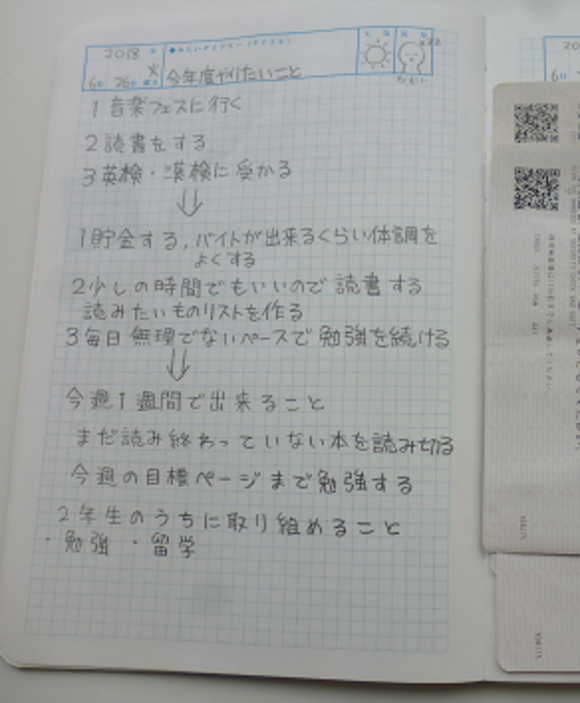 2018 年
6月 26日 火曜日
●みらいダイアリー(タイトル)
今年度やりたいこと
天気
気分
zzz
ねむい
1 音楽フェスに行く
2 読書をする
3 英検・漢検に受かる
⇓
1 貯金する,バイトが出来るくらい体調を
よくする
2 少しの時間でもいいので読書する
読みたいものリストを作る
3 毎日無理でないペースで勉強を続ける
⇓
今週1週間で出来ること
まだ読み終わっていない本を読み切る
今週の目標ページまで勉強する
2年生のうちに取り組めること
・勉強 ・留学
20
6月